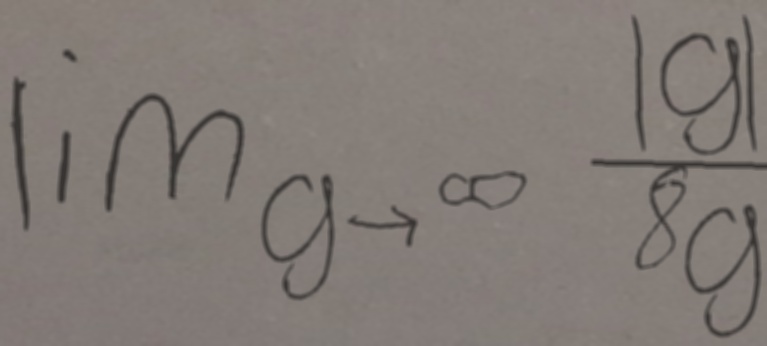 lim g→∞ |g|
8g